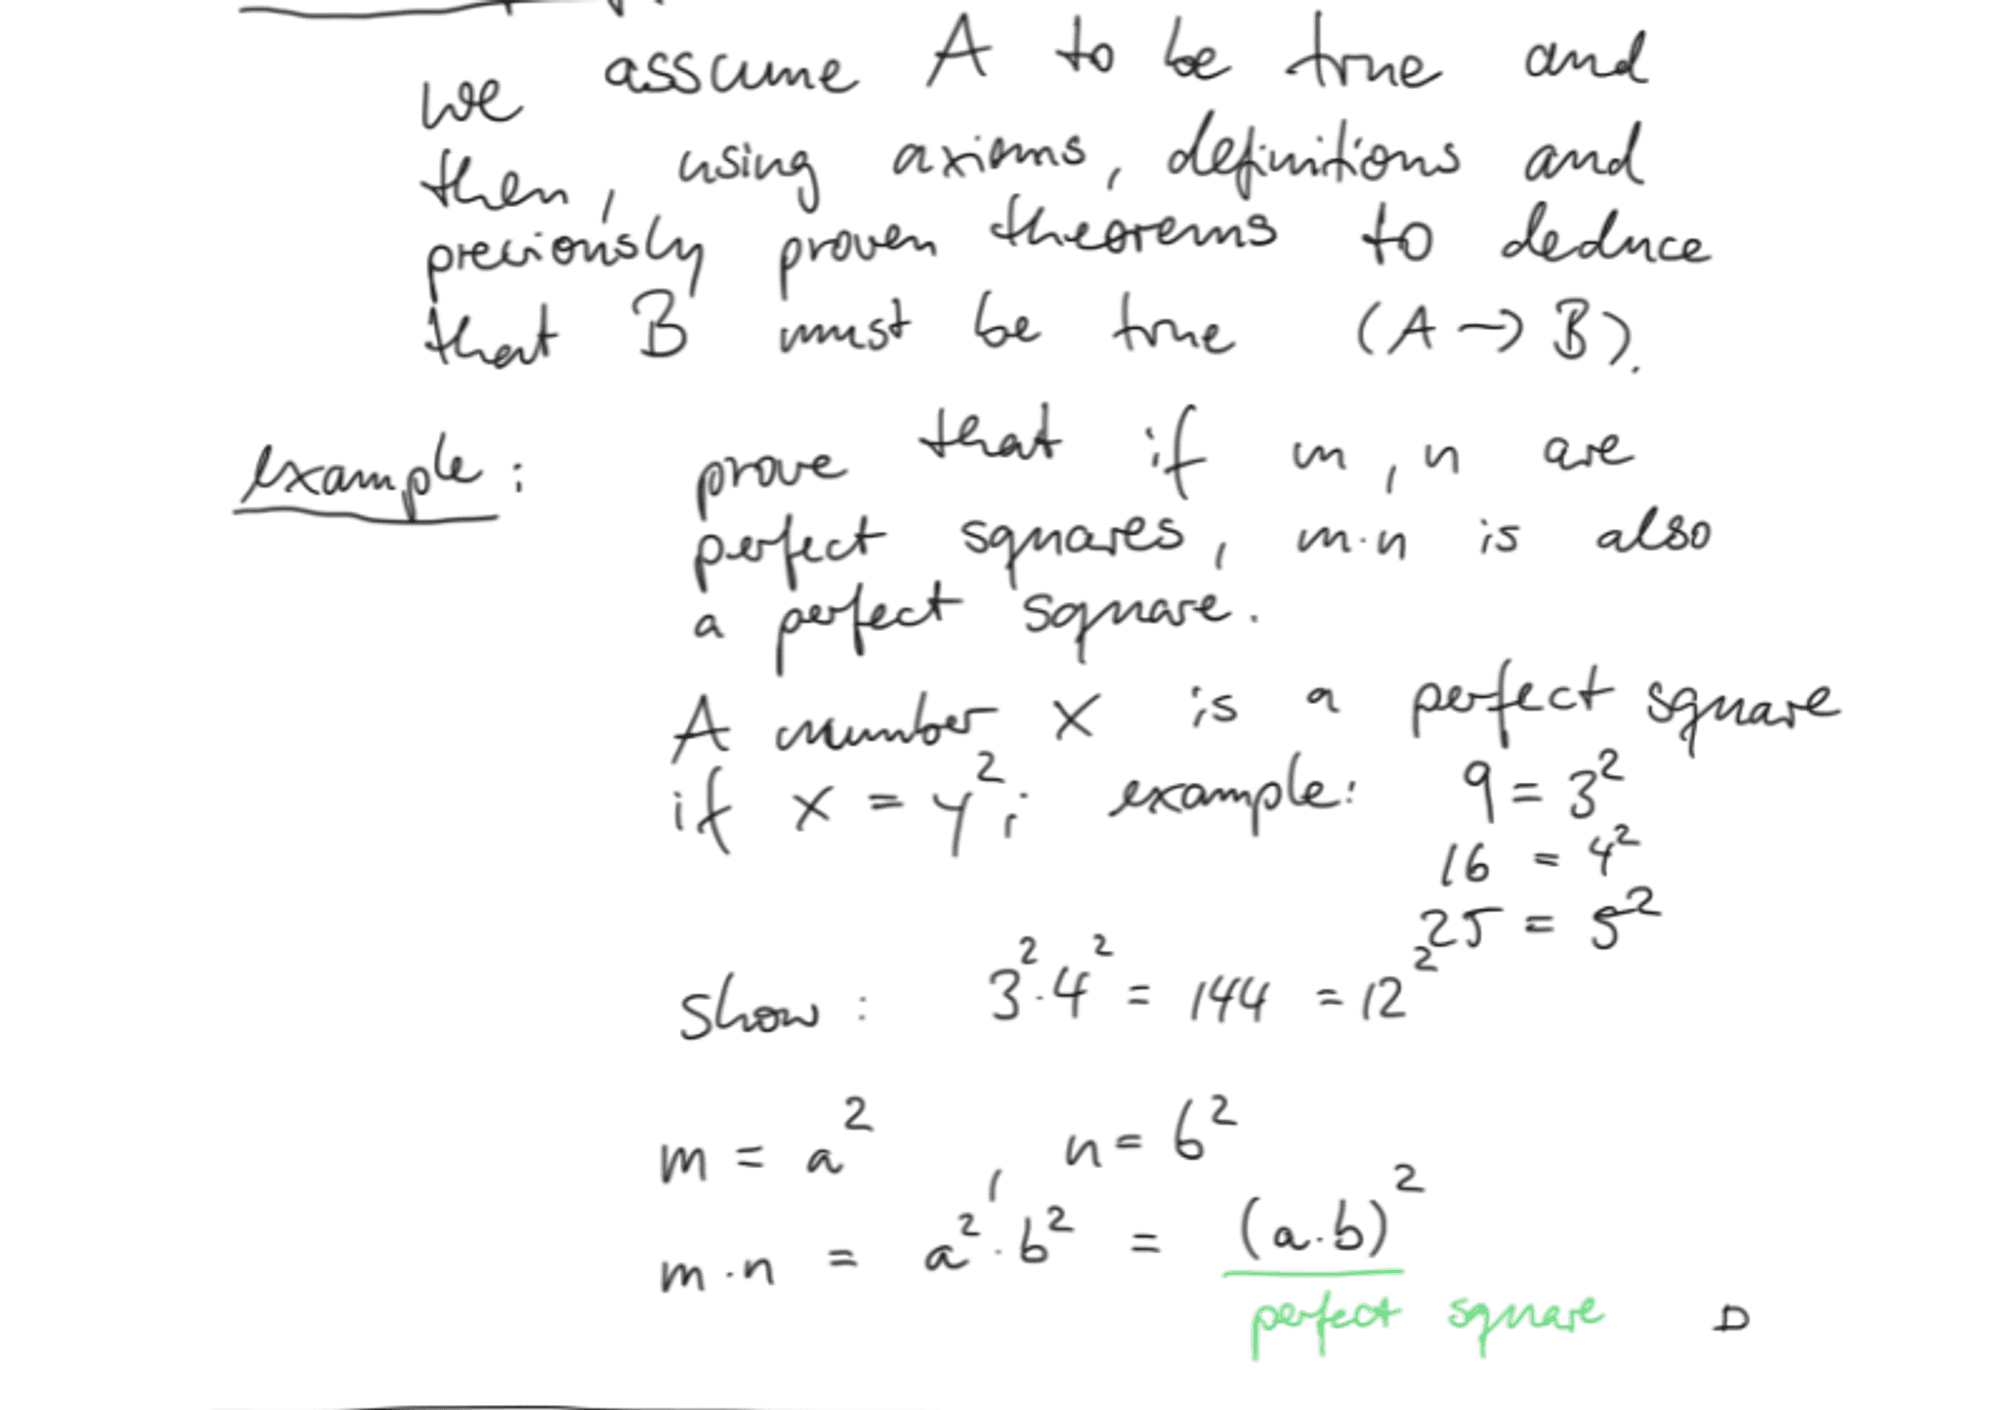 we assume A to be true and
then, using axioms, definitions and
previously proven theorems to deduce
that B must be true (A → B).
example: prove that if m, n are
perfect squares, m·n is also
a perfect square.
A number x is a perfect square
if x = y²; example: 9 = 3²
16 = 4²
25 = 5²
show: 3²·4² = 144 = 12²
m = a², n = b²
m·n = a²·b² = (a·b)²
perfect square □